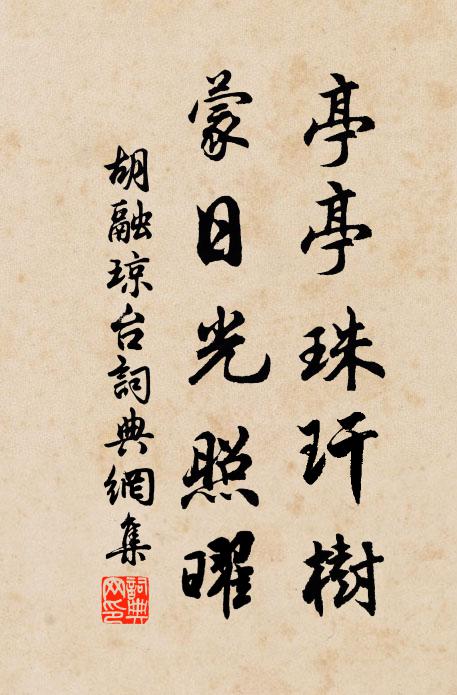 亭亭珠玕樹
蒙日光照曜
胡融琼台詞典網集
詞典
网印